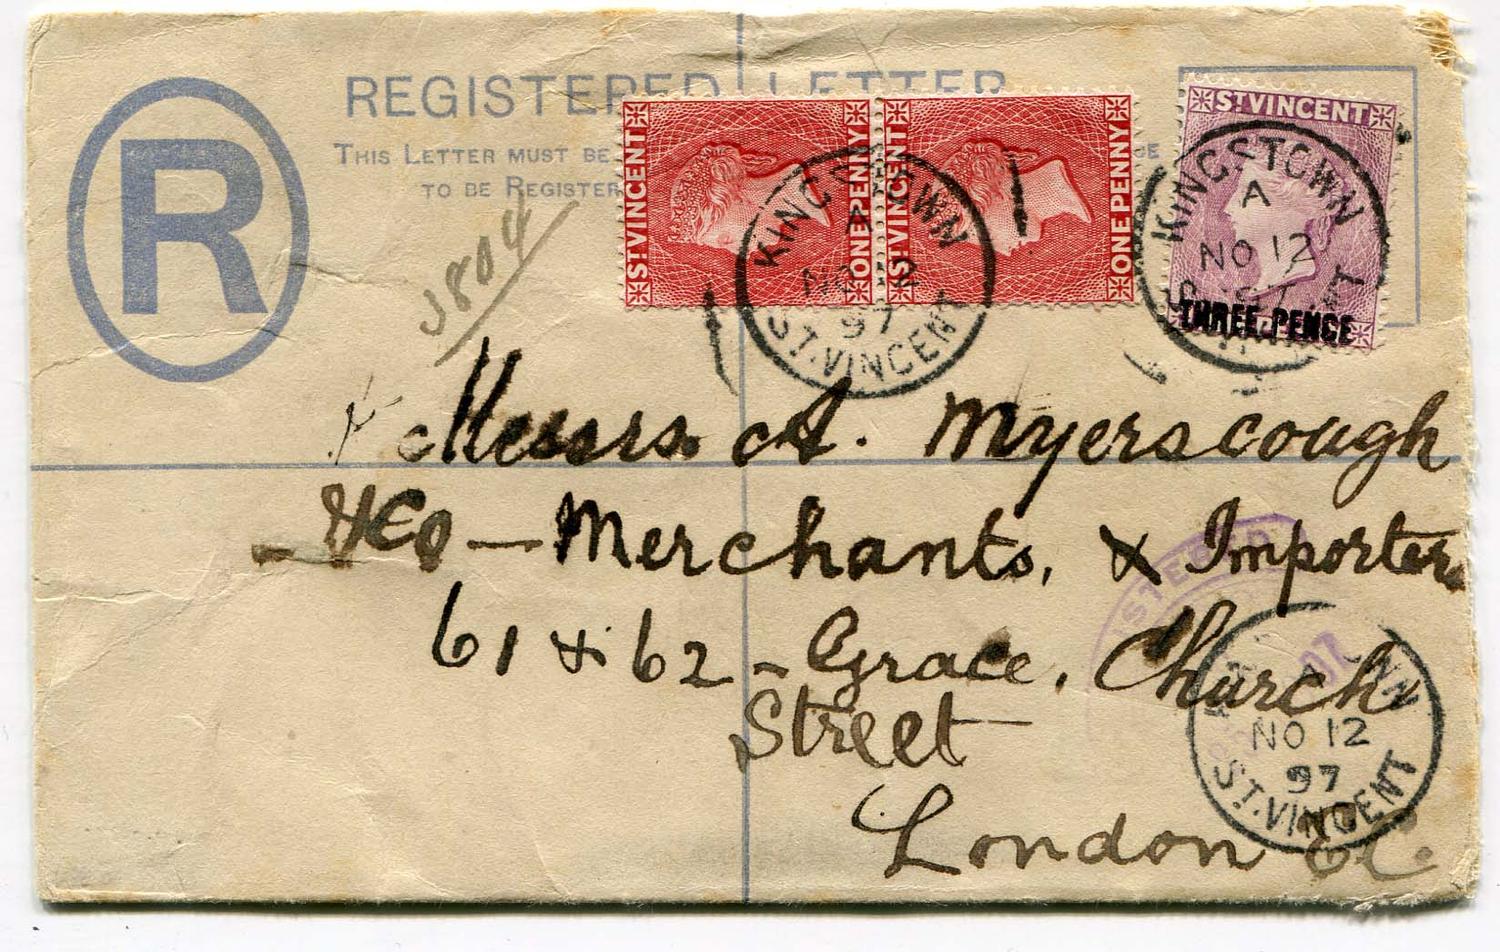 REGISTERED LETTER
THIS LETTER MUST BE
TO BE REGISTER
R
ST VINCENT
ONE PENNY
ST VINCENT
ONE PENNY
ST VINCENT
THREE PENCE
KINGSTOWN
A
NO 12
97
ST. VINCENT
KINGSTOWN
A
NO 12
97
3804
Messrs. A. Myerscough
& Co — Merchants, & Importers
61 & 62 - Grace, Church
Street
London E.C.
NO 12
97
ST. VINCENT